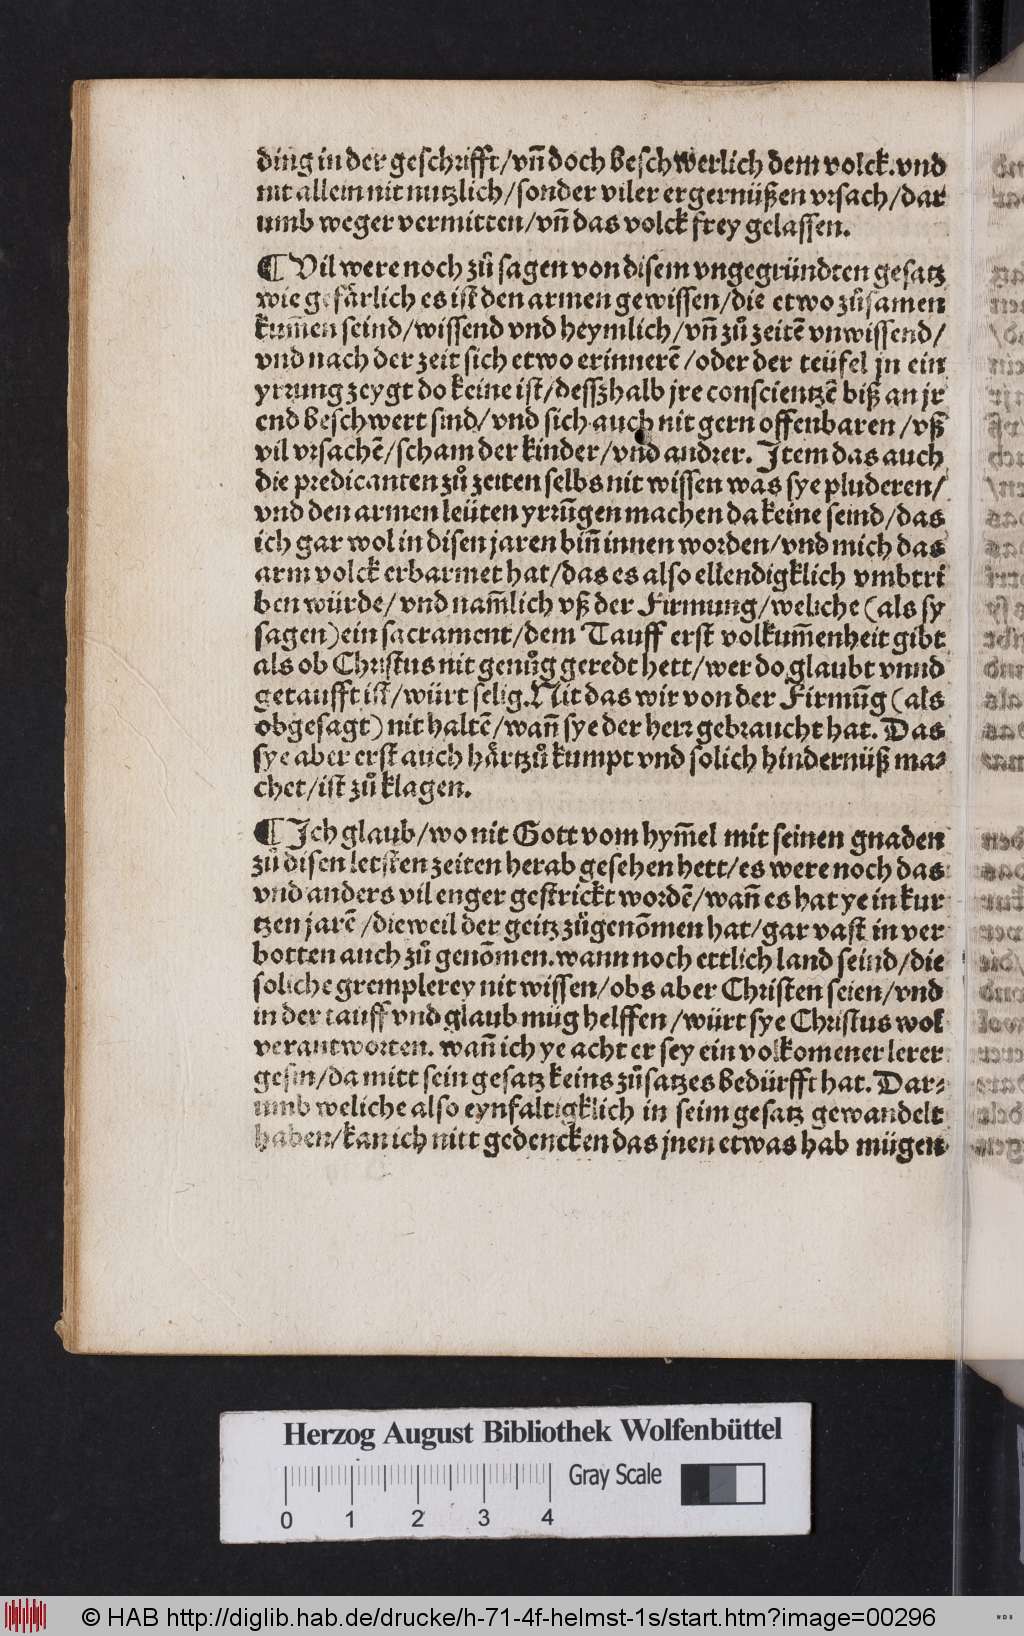 ding in der geschrifft/vñ doch beschwerlich dem volck.vnd
nit allein nit nutzlich/sonder viler ergernüßen vrsach/dar
umb weger vermitten/vñ das volck frey gelassen.
¶ Vil were noch zů sagen von disem vngegründten gesatz
wie gefärlich es ist den armen gewissen/die etwo zůsamen
kum̃en seind/wissend vnd heymlich/vñ zů zeitẽ vnwissend/
vnd nach der zeit sich etwo erinnerẽ/oder der teüfel jn ein
yrrung zeygt do keine ist/desszhalb jre conscientzẽ biß an jr
end beschwert sind/vnd sich auch nit gern offenbaren/vß
vil vrsachẽ/scham der kinder/vnd andrer. Item das auch
die predicanten zů zeiten selbs nit wissen was sye pluderen/
vnd den armen leüten yrrũgen machen da keine seind/das
ich gar wol in disen jaren biñ innen worden/vnd mich das
arm volck erbarmet hat/das es also ellendigklich vmbtri
ben würde/vnd nam̃lich vß der Firmung/weliche (als sy
sagen) ein sacrament/dem Tauff erst volkum̃enheit gibt
als ob Christus nit genůg geredt hett/wer do glaubt vnnd
getaufft ist/würt selig. Nit das wir von der Firmũg (als
obgesagt) nit haltẽ/wañ sye der herr gebraucht hat. Das
sye aber erst auch härtzů kumpt vnd solich hindernüß ma-
chet/ist zů klagen.
¶ Ich glaub/wo nit Gott vom hym̃el mit seinen gnaden
zů disen letsten zeiten herab gesehen hett/es were noch das
vnd anders vil enger gestrickt wordẽ/wañ es hat ye in kur
tzen jarẽ/dieweil der geitz zůgenõmen hat/gar vast in ver
botten auch zů genõmen.wann noch ettlich land seind/die
soliche gremplerey nit wissen/obs aber Christen seien/vnd
in der tauff vnd glaub müg helffen/würt sye Christus wol
verantworten. wañ ich ye acht er sey ein volkomener lerer
gesin/damitt sein gesatz keins zůsatzes bedürfft hat. Dar-
umb weliche also eynfaltigklich in seim gesatz gewandelt
haben/kan ich nitt gedencken das jnen etwas hab mügen
Herzog August Bibliothek Wolfenbüttel
Gray Scale
0 1 2 3 4
© HAB http://diglib.hab.de/drucke/h-71-4f-helmst-1s/start.htm?image=00296